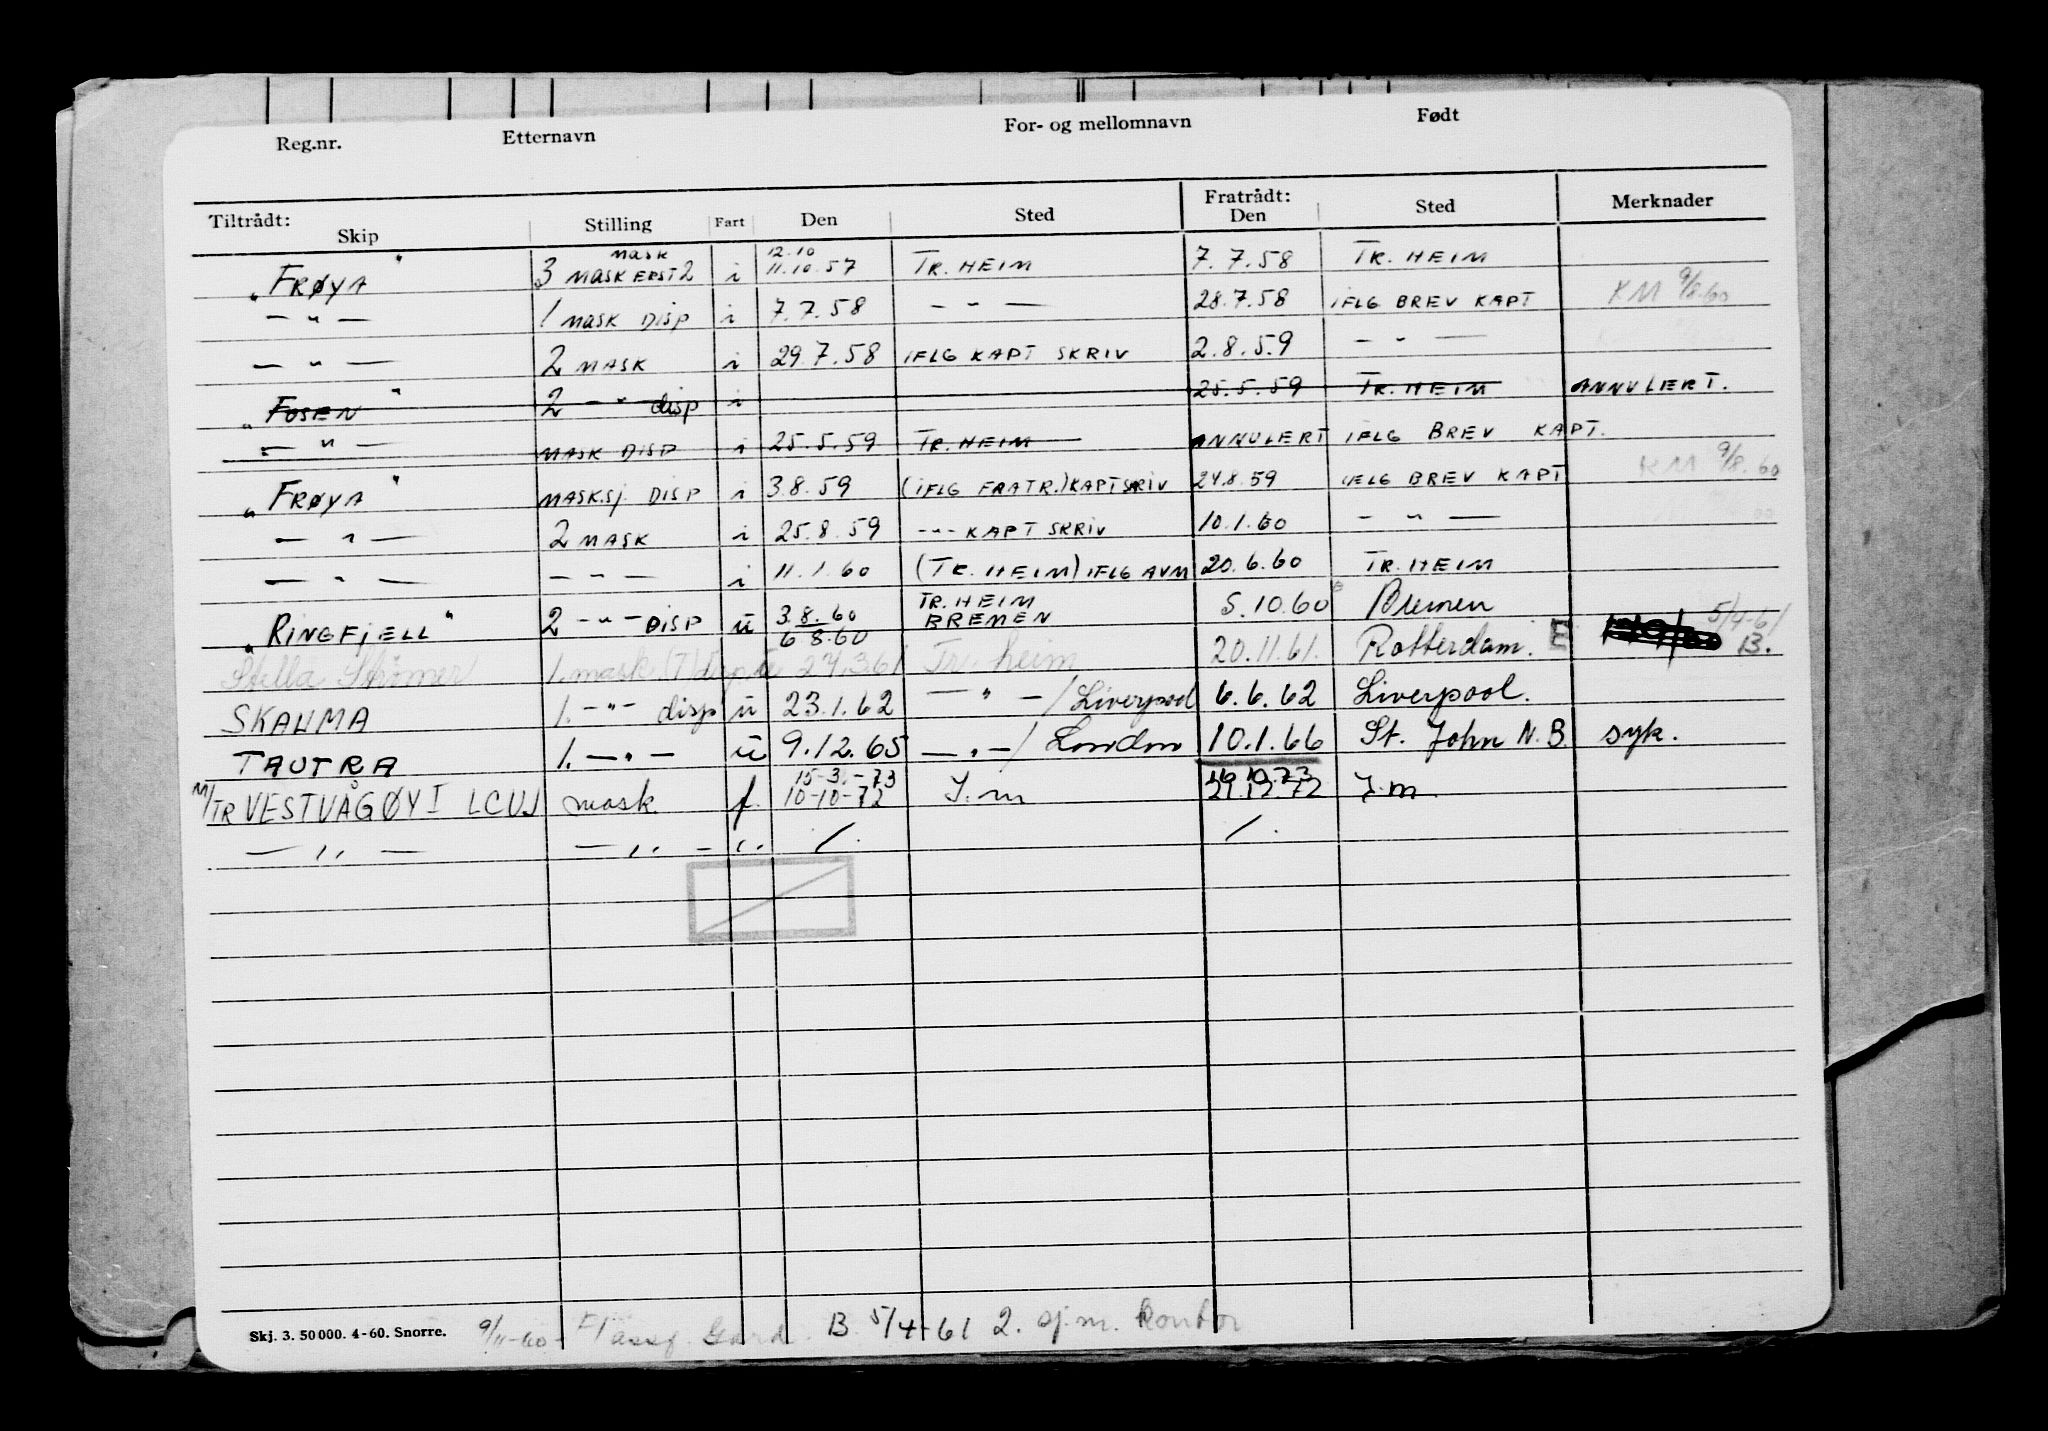 Reg.nr. Etternavn For- og mellomnavn Født
Tiltrådt: Fratrådt:
Skip Stilling Fart Den Sted Den Sted Merknader
mask 12.10
"FRØYA" 3 MASK ERST 2 i 11.10.57 TR. HEIM 7.7.58 TR. HEIM
— " — 1 MASK DISP i 7.7.58 — " — 28.7.58 IFLG BREV KAPT KM 9/8.60
— " — 2 MASK i 29.7.58 IFLG KAPT SKRIV 2.8.59 — " —
"FOSEN" 2 — " — disp i 25.5.59 TR. HEIM ANNULERT.
— " — MASK DISP i 25.5.59 TR. HEIM ANNULERT IFLG BREV KAPT.
"FRØYA" MASKSJ. DISP i 3.8.59 (IFLG FRATR.) KAPT SKRIV 24.8.59 IFLG BREV KAPT KM 9/8.60
— " — 2 MASK i 25.8.59 — " — KAPT SKRIV 10.1.60 — " —
— " — — " — i 11.1.60 (TR. HEIM) IFLG AVM 20.6.60 TR. HEIM
3.8.60 TR. HEIM
"RINGFJELL" 2 — " — DISP u 6 8.60 BREMEN 5.10.60 Bremen 5/4-61
Stella Strømer 1. mask (T) disp u 24.3.61 Tr. heim 20.11.61. Rotterdam. B.
SKAUMA 1. — " — disp u 23.1.62 — " — / Liverpool 6.6.62 Liverpool.
TAUTRA 1. — " — u 9.12.65 — " — / London 10.1.66 St. John N.B. syk.
15-3.-73
M/TR VESTVÅGØY I LCUJ mask f. 10-10-72 I.m I.m.
— " — — " — " /. /.
Skj. 3. 50 000. 4-60. Snorre. 9/11-60 B. 5/4-61 2. sj.m. kontor